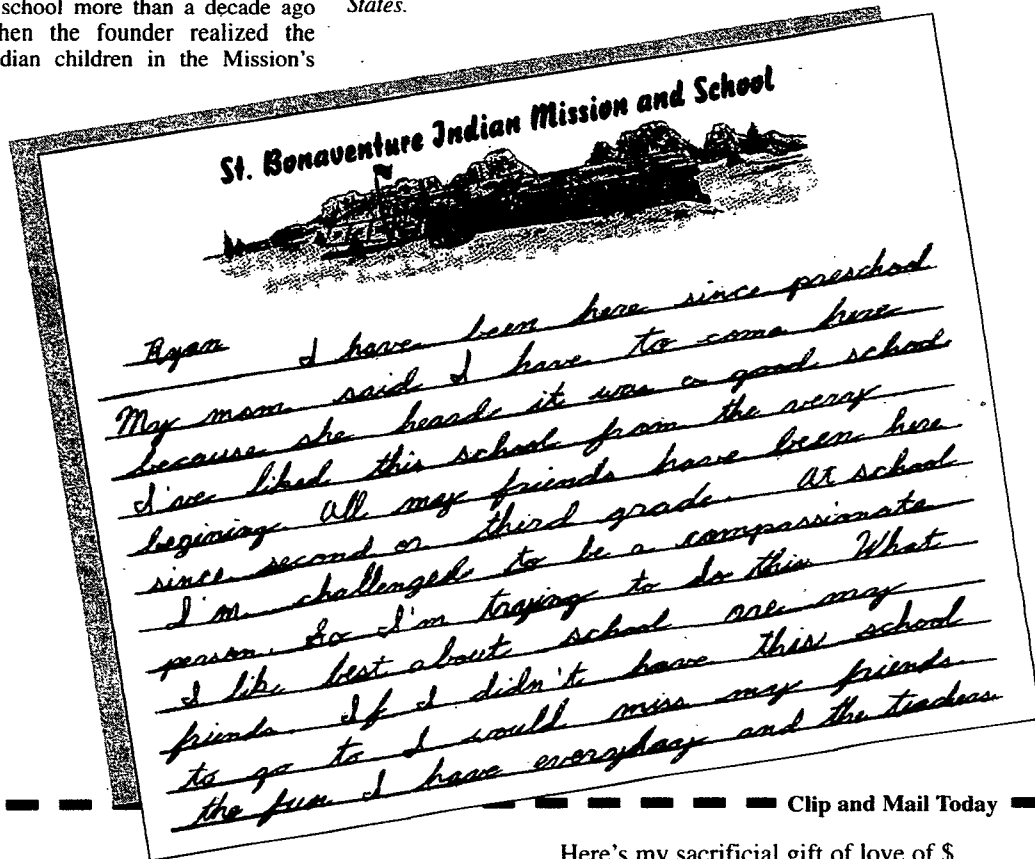 school more than a decade ago
hen the founder realized the
dian children in the Mission's
States.
St. Bonaventure Indian Mission and School
Ryan I have been here since preschool
My mom said I have to come here
because she heard it was a good school
I've liked this school from the very
begining. All my friends have been here
since second or third grade. At school
I'm challenged to be a compassionate
person. So I'm trying to do this. What
I like best about school are my
friends. If I didn't have this school
to go to I would miss my friends.
the fun I have everyday and the teachers.
Clip and Mail Today
Here's my sacrificial gift of love of $